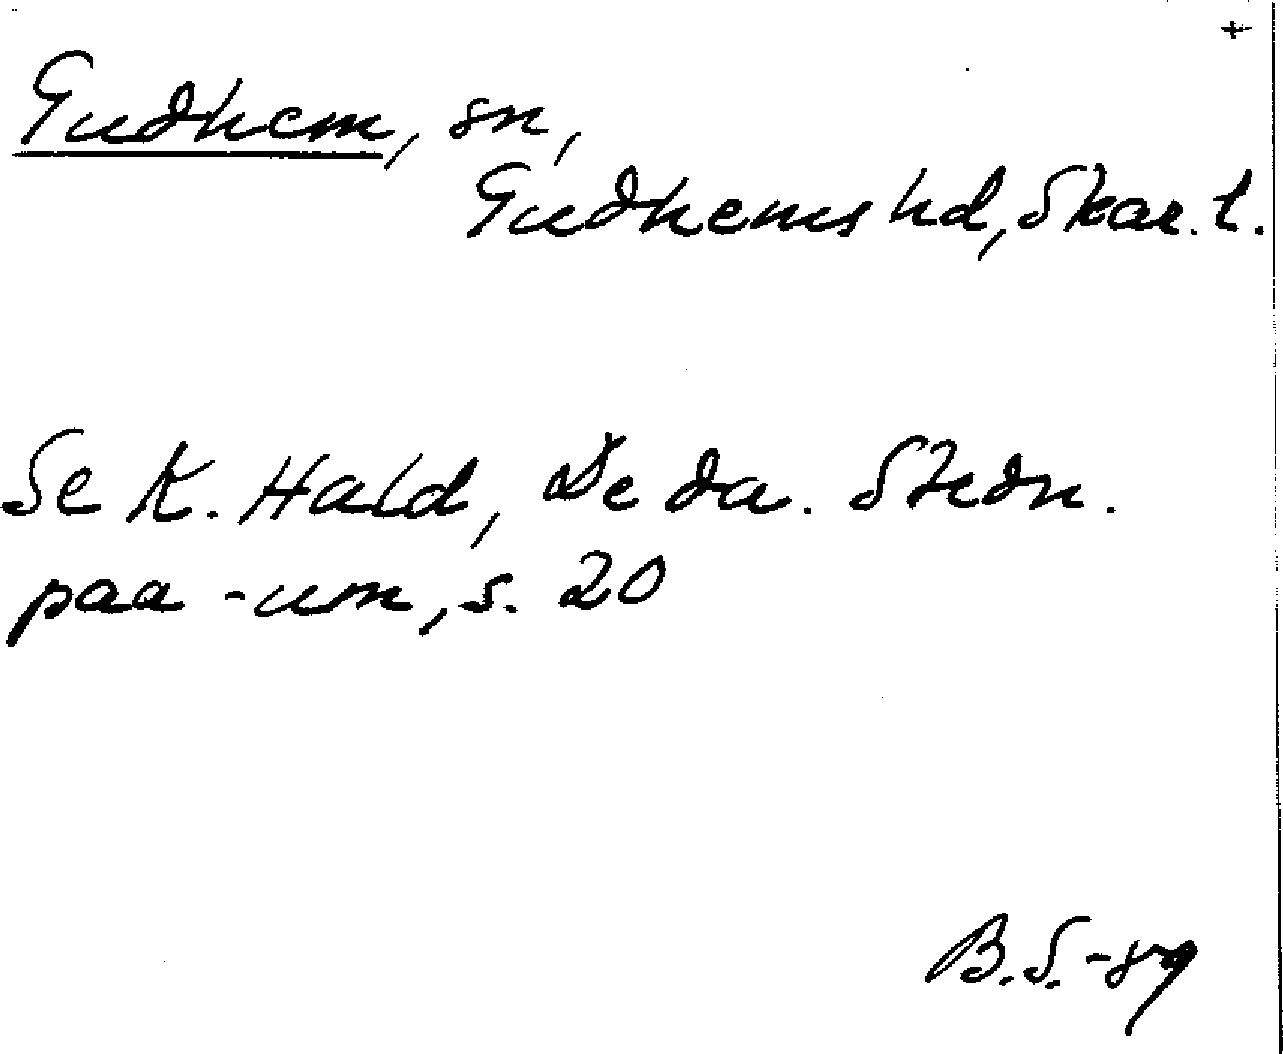 +
Gudhem, sn,
Gudhems hd, Skar. l.
Se K. Hald, De da. Stedn.
paa -um, s. 20
B.S.-89